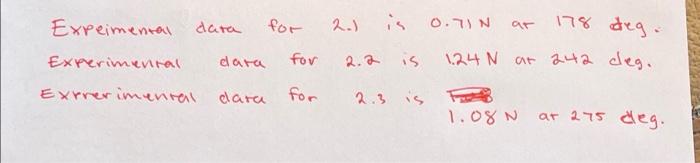 Expeimental data for 2.1 is 0.71 N at 178 deg.
Experimental data for 2.2 is 1.24 N at 242 deg.
Exrerimental data for 2.3 is
1.08 N at 275 deg.